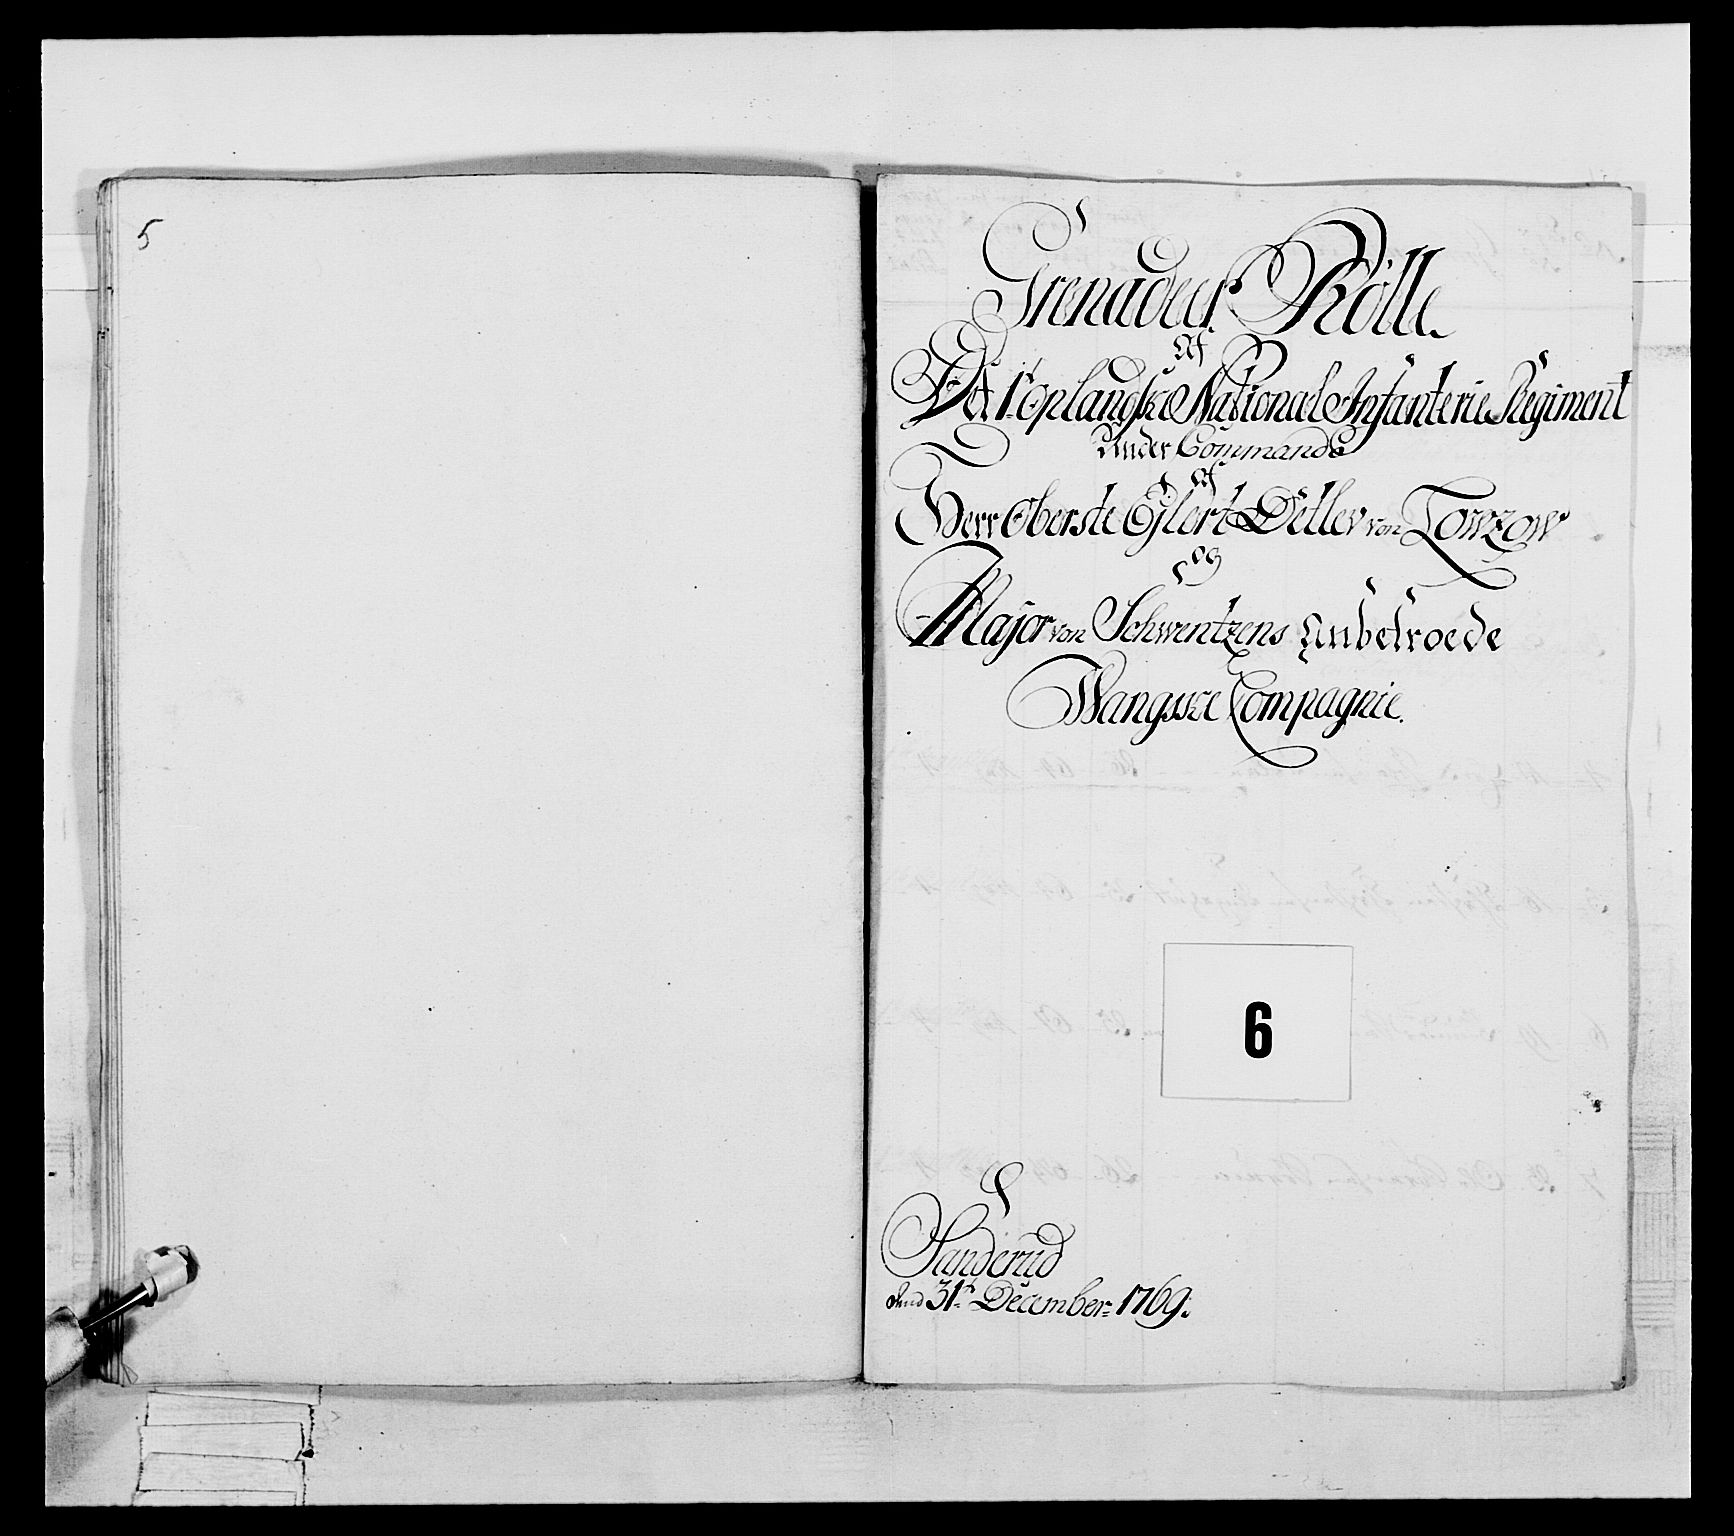 5
Grenadeer Rolle
Af
Det 1t Oplandske National Infanterie Regiment
Under Commando
Af
Herr Oberste Ejlert Detlev von Lowzow
og
Major von Schwentzens Anbetroede
Wangske Compagnie.
6
Sanderud
dend 31te December 1769.